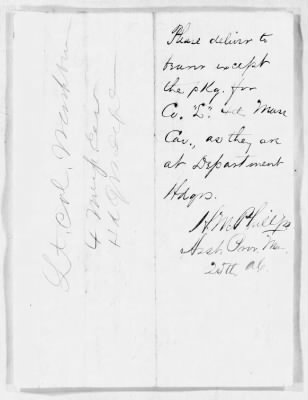 Please deliver to
bearer except
the pkg. for
Co. "L."
Cav., as they are
at Department
Hdqrs.
H M Phillips
Asst. Prov. Mar.
25th A.C.
Lt. Col.
4
Hdqrs Dept